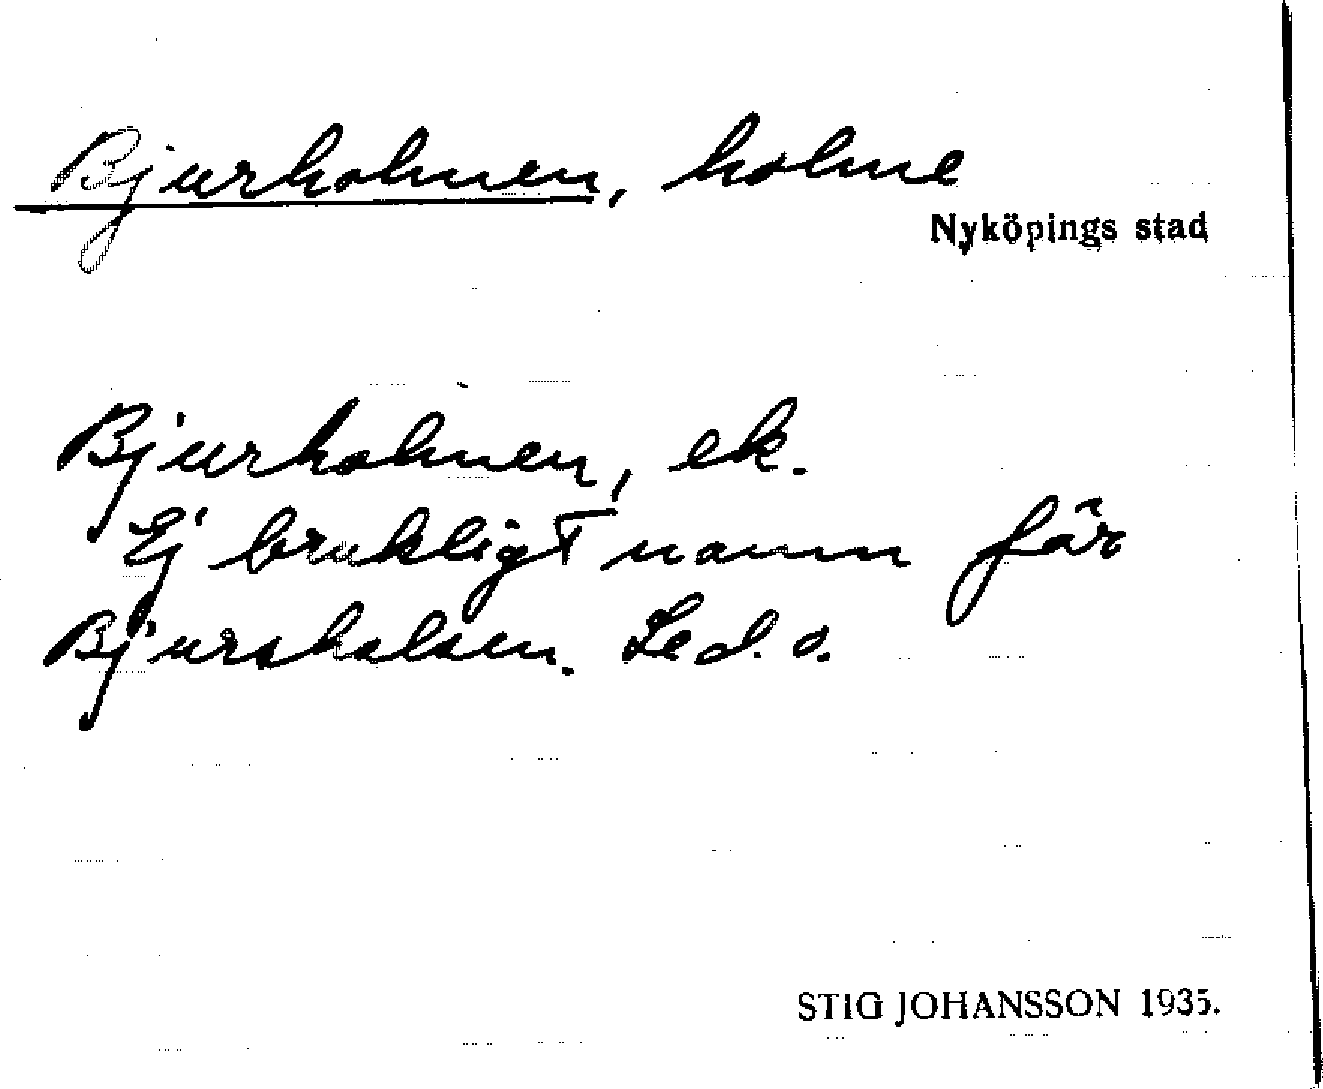 Bjurholmen, holme
Nyköpings stad
Bjurholmen, ek.
Ej brukligt namn för
Bjursholmen. Se d. o.
STIG JOHANSSON 1935.